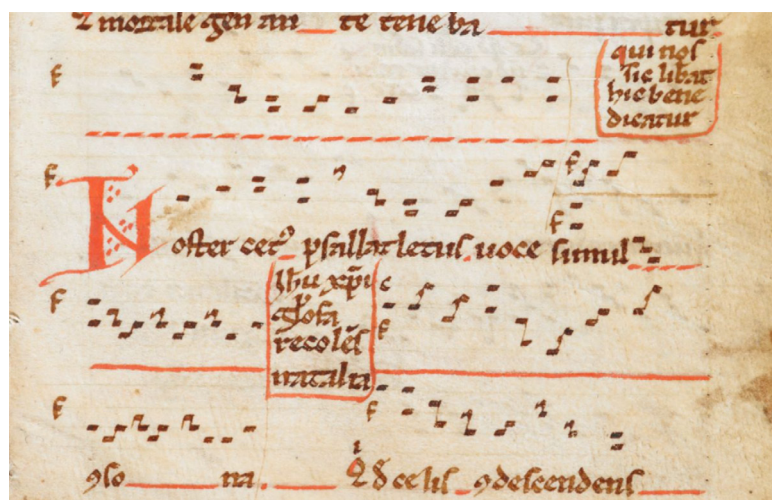 mortale gen an te tene ba tur
qui nos
sic libat
hic bene
dicatur
Noster cetꝰ psallat letus uoce simul
ihu xp̄i
gl̓osa
recolēs
natalia
ꝯso na
de celis ꝯdescendens